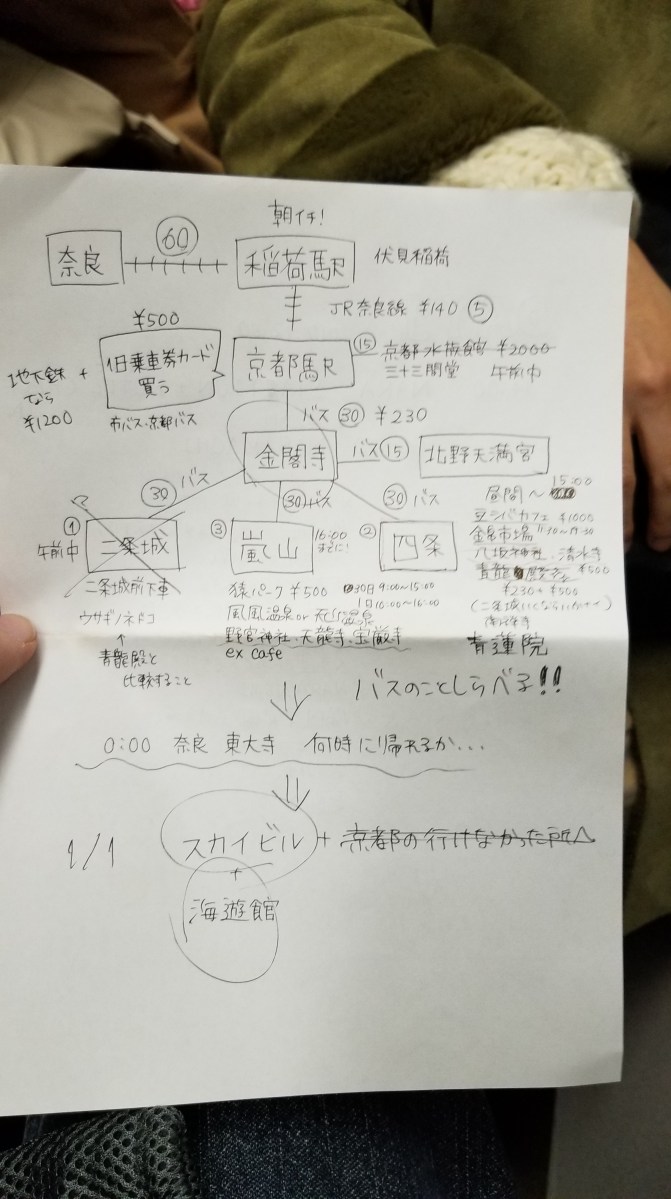 朝イチ!
奈良 60 稲荷駅 伏見稲荷
JR奈良線 ¥140 5
¥500
1日乗車券カード
買う
市バス・京都バス
地下鉄 +
なら
¥1200
京都駅 15 京都水族館 ¥2000
三十三間堂 午前中
バス 30 ¥230
金閣寺 バス 15 北野天満宮
30 バス
30 バス
30 バス
① 二条城
午前中
二条城前下車
ウサギノネドコ
↑
青龍殿と
比較すること
③ 嵐山 16:00
までに!
猿パーク ¥500 30日 9:00〜15:00
1日 10:00〜16:00
風風温泉 or 天山温泉
野宮神社、天龍寺、宝厳寺
ex cafe
② 四条
昼間〜 15:00
豆シバカフェ ¥1000
錦市場 11:30〜19:30
八坂神社、清水寺
青龍殿 ¥500
¥230+¥500
青蓮院
バスのことしらべる!!
0:00 奈良 東大寺 何時に帰れるか...
1/1 スカイビル + 京都の行けなかった所へ
+
海遊館